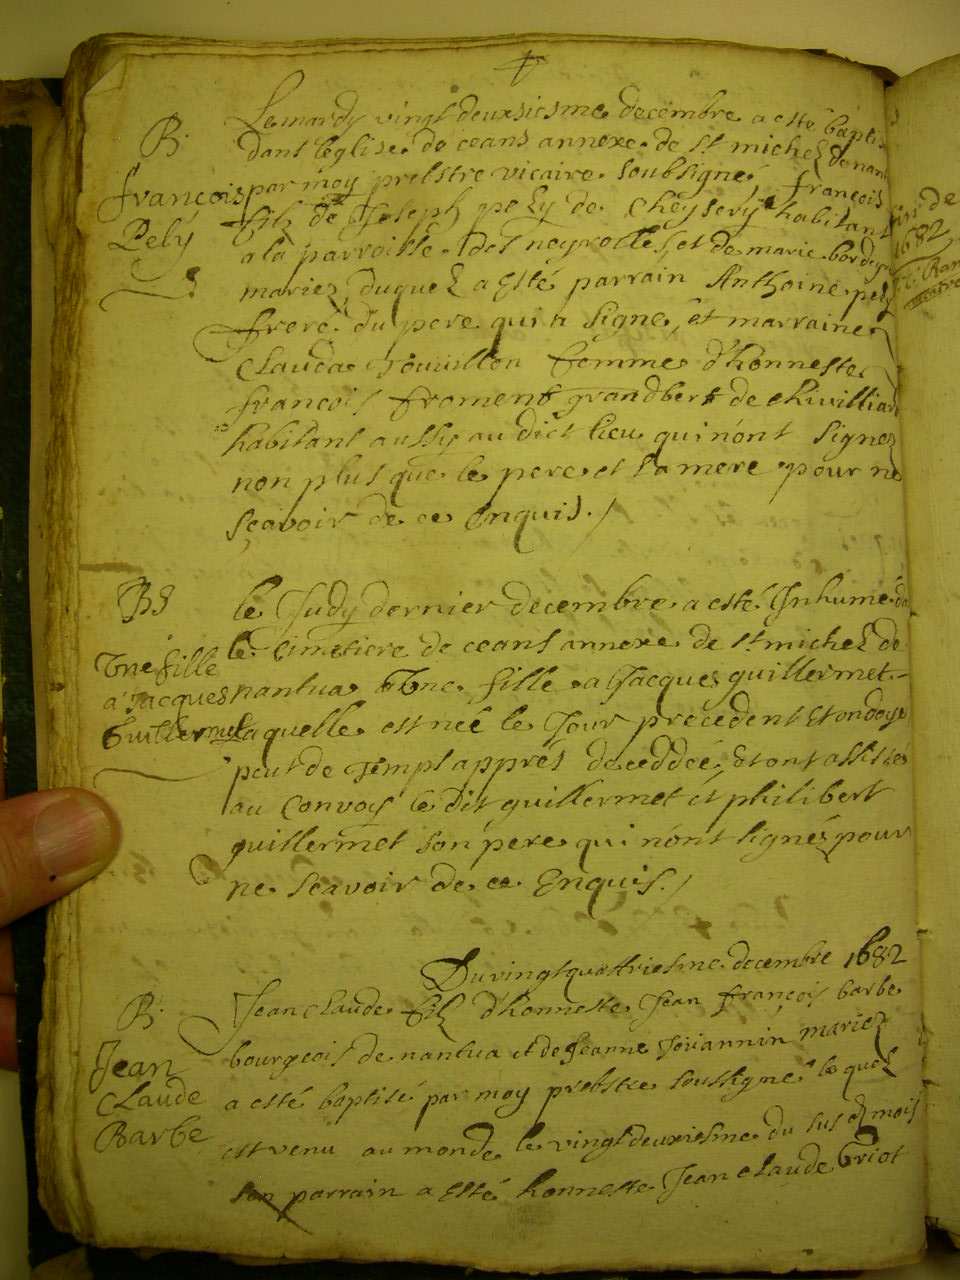 B.
françois
Pely
Le mardy vingt deuxsiesme decembre a esté bapti
dans leglise de ceans annexe de st michel de nan
par moy prebstre vicaire soubsigné, françois
filz de Joseph pely de Cheysery habitant
a la parroisse des neyrolles, et de marie borde
mariez, duquel a esté parrain Anthoine pely
frere du pere qui a signé, et marraine
Clauda Touillon femme d'honneste
françois froment grandbert de Chivilliard
habitant aussy au dict lieu qui n'ont signez
non plus que le pere et la mere pour ne
sçavoir de ce enquis./
BS
Une fille
a Jacques
Guillermet
le Judy dernier decembre a esté Inhumé da
le Cimetiere de ceans annexe de st michel de
nantua Une fille a Jacques guillermet
laquelle est neé le Jour precedent Et ondoye
peut de Temps appres deceddeé, Et ont assisté
au Convoy le dit guillermet et philibert
guillermet son pere qui n'ont signéz pour
ne scavoir de ce Enquis./
B.
Jean
Claude
Barbe
Du vingt quattriesme decembre 1682
Jean Claude filz d'honneste Jean françois barbe
bourgeois de nantua et de Jeanne Jouannin mariez
a esté baptisé par moy prebstre soussigné lequel
est venu au monde le vingt deuxiesme du sus dt mois
son parrain a esté honneste Jean Claude Griot
fin de
1682